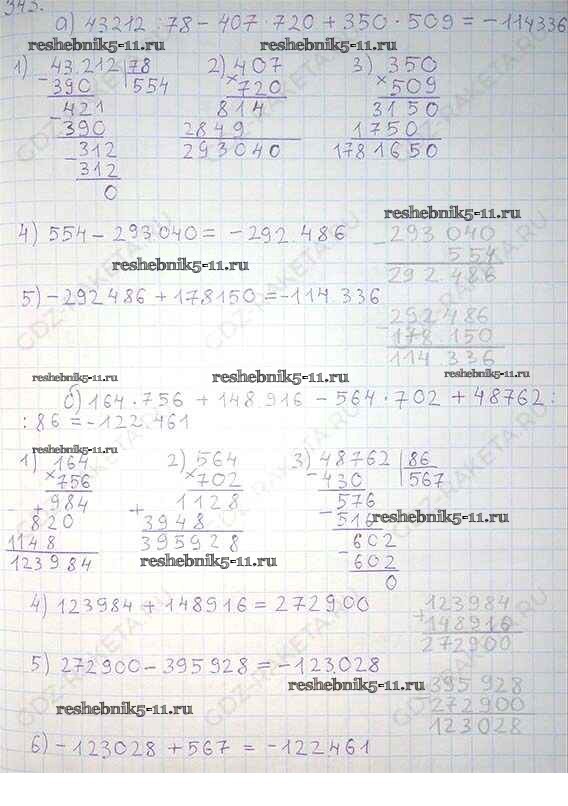 345.
а) 43212 : 78 - 407 · 720 + 350 · 509 = -114336
reshebnik5-11.ru reshebnik5-11.ru
1) 43.212 78 2) 407 3) 350
- 390 554 × 720 × 509
421 814 3150
- 390 2849 1750
- 312 293040 1781650
312
0
reshebnik5-11.ru
4) 554 - 293040 = -292.486
reshebnik5-11.ru
- 293 040
554
292.486
5) -292486 + 178150 = -114.336
- 292486
178.150
114 336
reshebnik5-11.ru reshebnik5-11.ru reshebnik5-11.ru
б) 164 · 756 + 148 916 - 564 · 702 + 48762 :
: 86 = -122.461
reshebnik5-11.ru
1) 164 2) 564 3) 48762 86
× 756 × 702 - 430 567
+ 984 + 1128 576
820 3948 - 516
1148 395928 - 602
123984 602
0
reshebnik5-11.ru reshebnik5-11.ru
4) 123984 + 148916 = 272900
+ 123984
148916
272900
5) 272900 - 395928 = -123028
reshebnik5-11.ru
- 395 928
272900
123028
reshebnik5-11.ru
6) -123028 + 567 = -122461
reshebnik5-11.ru
GDZ-RAKETA.RU